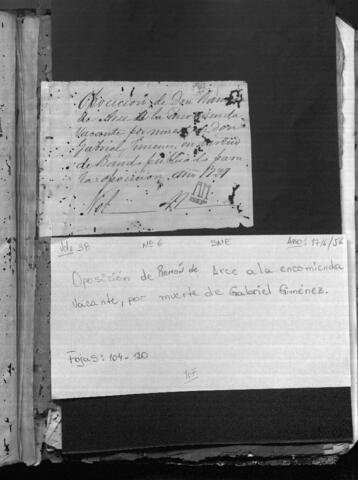 Oposicion de Don Ramon
de Arce de la encomienda
vacante por muerte de don
Gabriel Gimenez, en virtud
de Bando publicado para
la oposicion. Año 17
Vol: 38 Nº 6 SNE Año: 1716/56
Oposición de Ramón de Arce a la encomienda
vacante, por muerte de Gabriel Giménez.
Fojas: 104-120